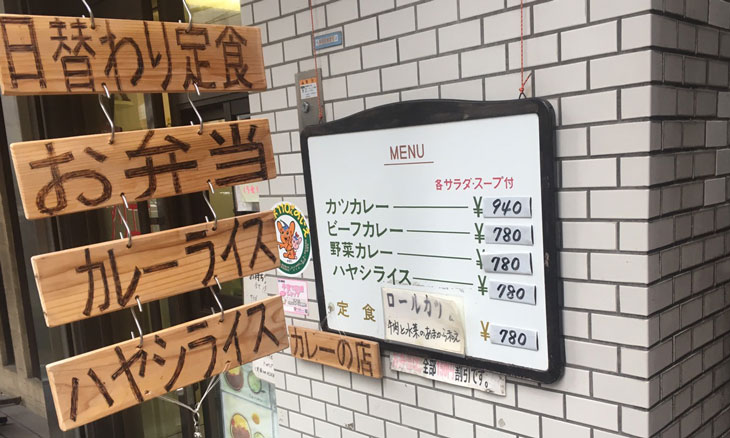 日替わり定食
お弁当
カレーライス
ハヤシライス
カレーの店
MENU
各サラダ・スープ付
カツカレー ¥940
ビーフカレー ¥780
野菜カレー ¥780
ハヤシライス ¥780
定食 ¥780
ロールカツ
牛肉と水菜の
全部
割引です。